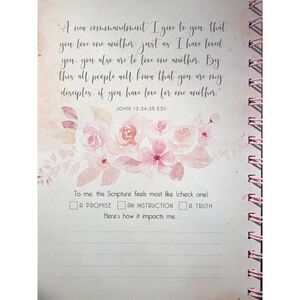 "A new commandment I give to you, that
you love one another: just as I have loved
you, you also are to love one another. By
this all people will know that you are my
disciples, if you have love for one another."
JOHN 13:34-35 ESV
To me, this Scripture feels most like (check one)
A PROMISE AN INSTRUCTION A TRUTH
Here's how it impacts me...